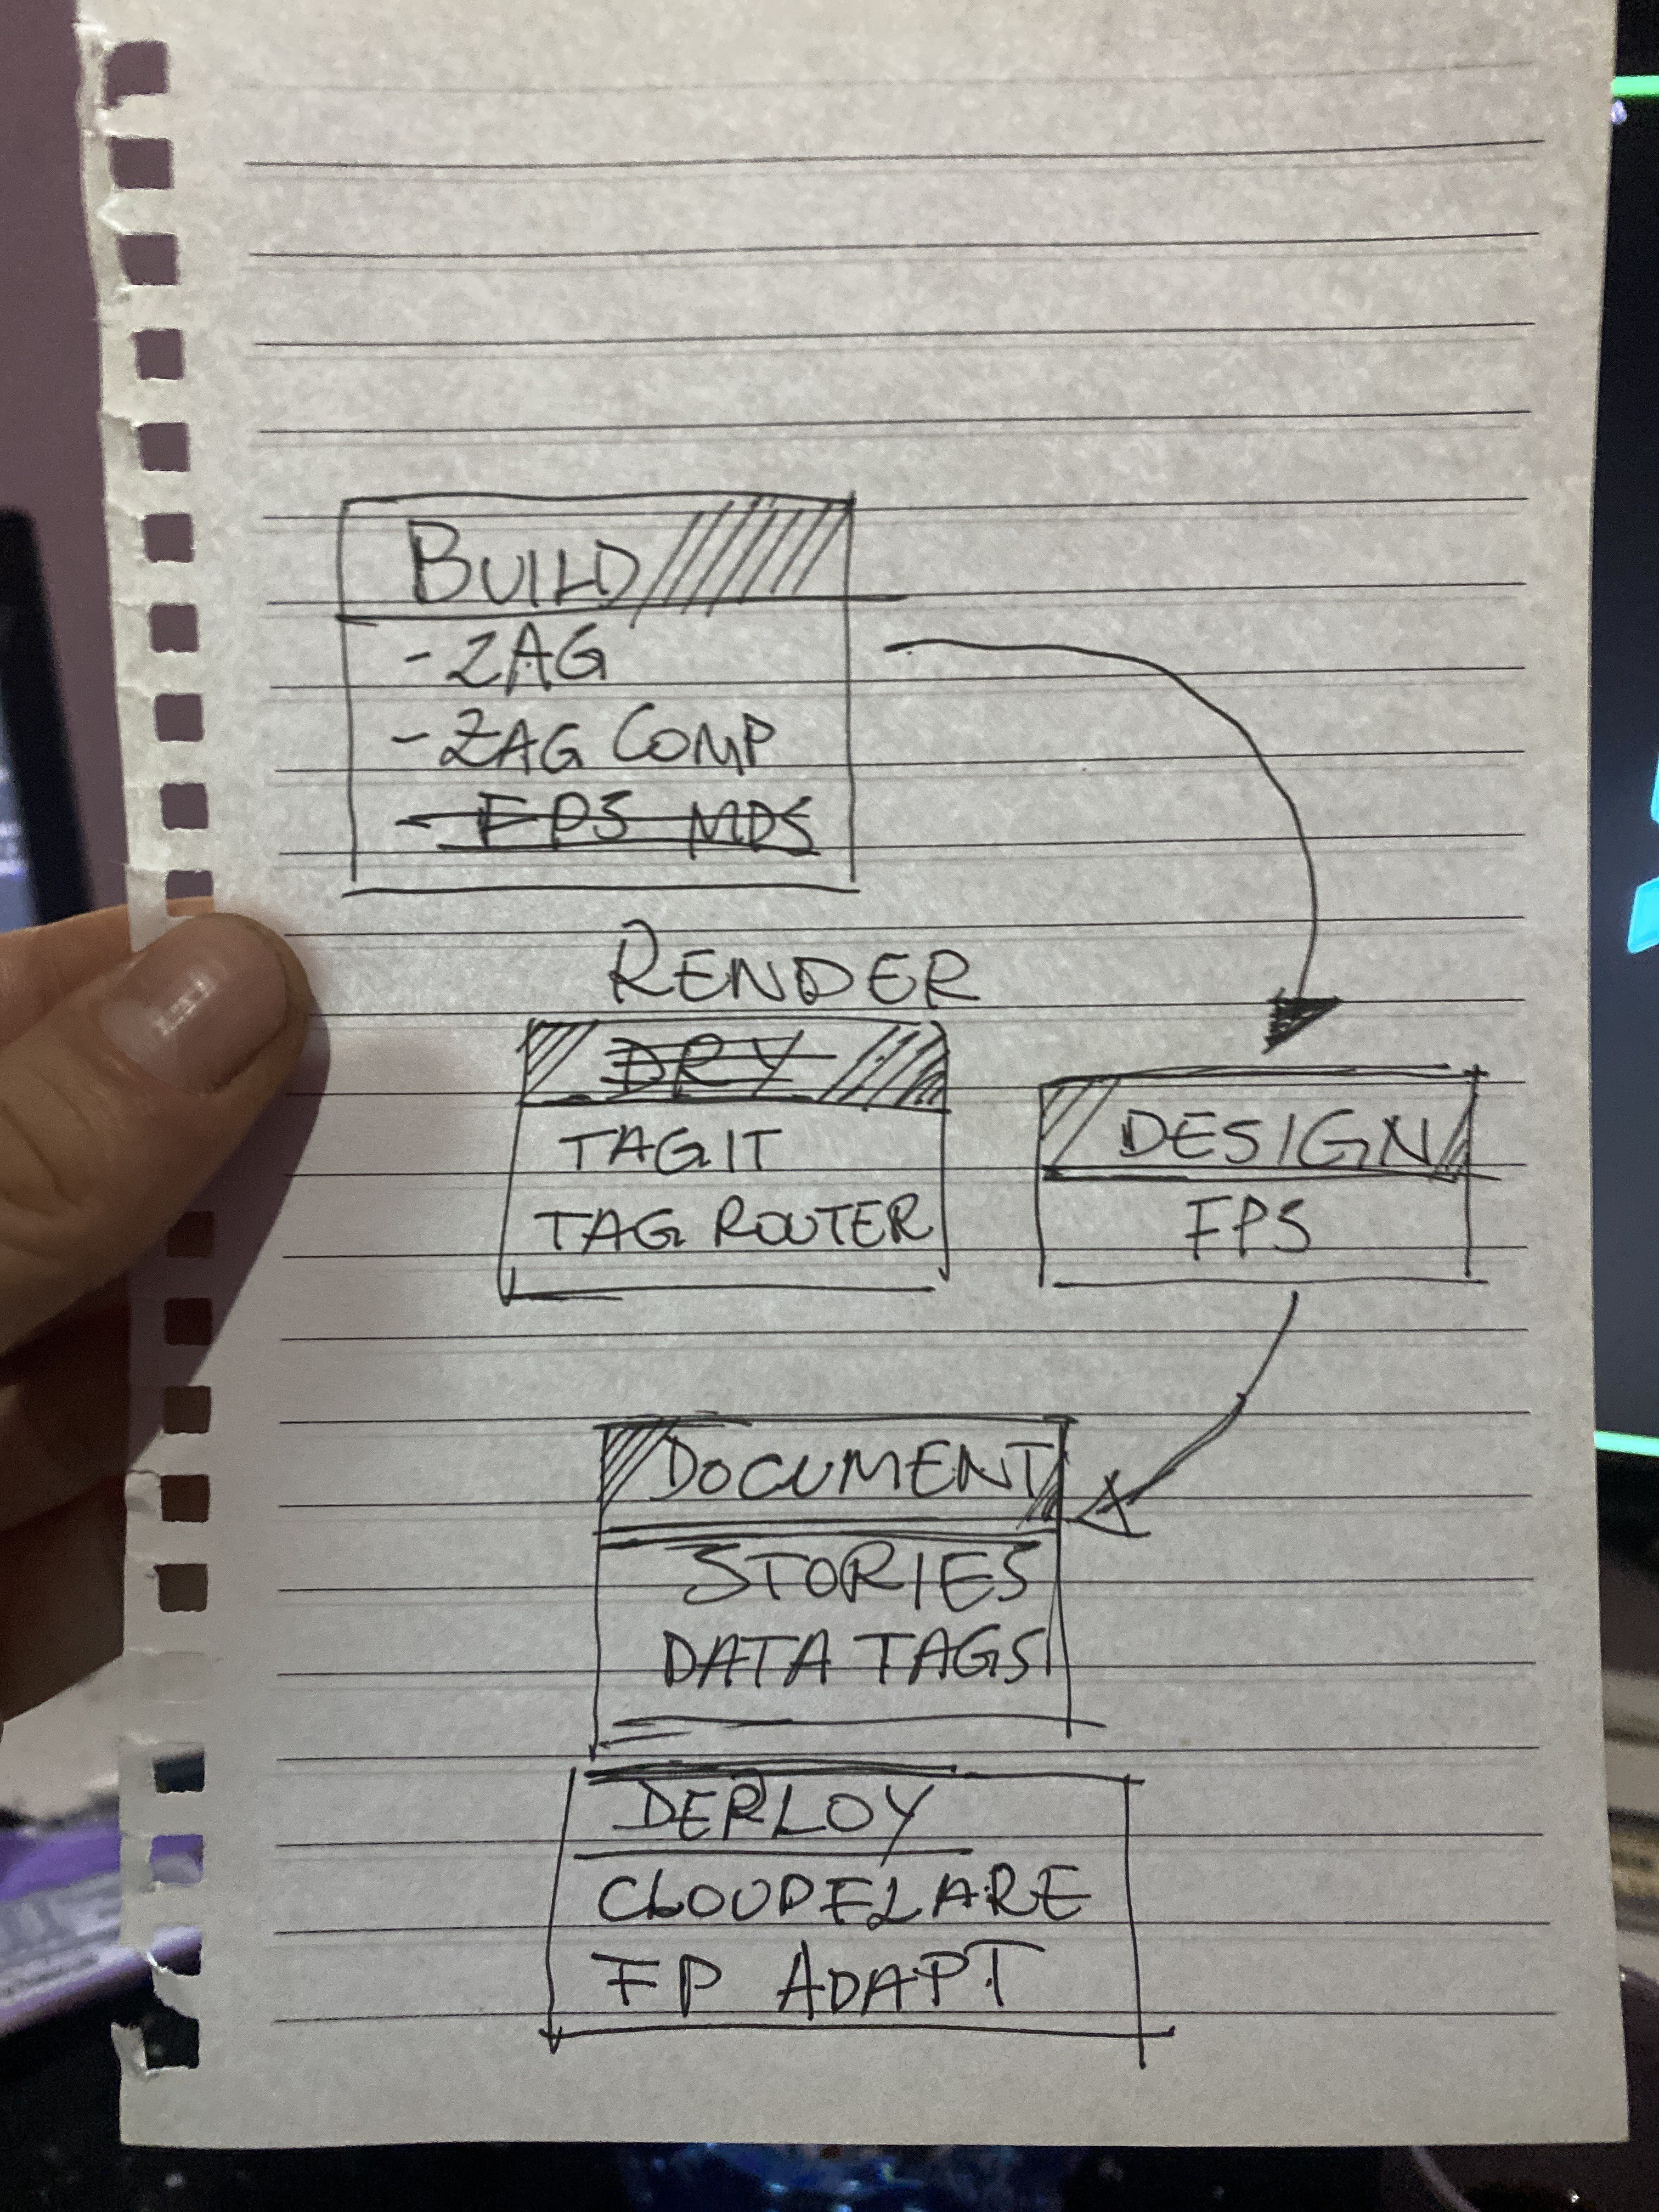 BUILD
- ZAG
- ZAG COMP
- FPS MDS
RENDER
DRY
TAGIT
TAG ROUTER
DESIGN
FPS
DOCUMENT
STORIES
DATA TAGS
DEPLOY
CLOUDFLARE
FP ADAPT